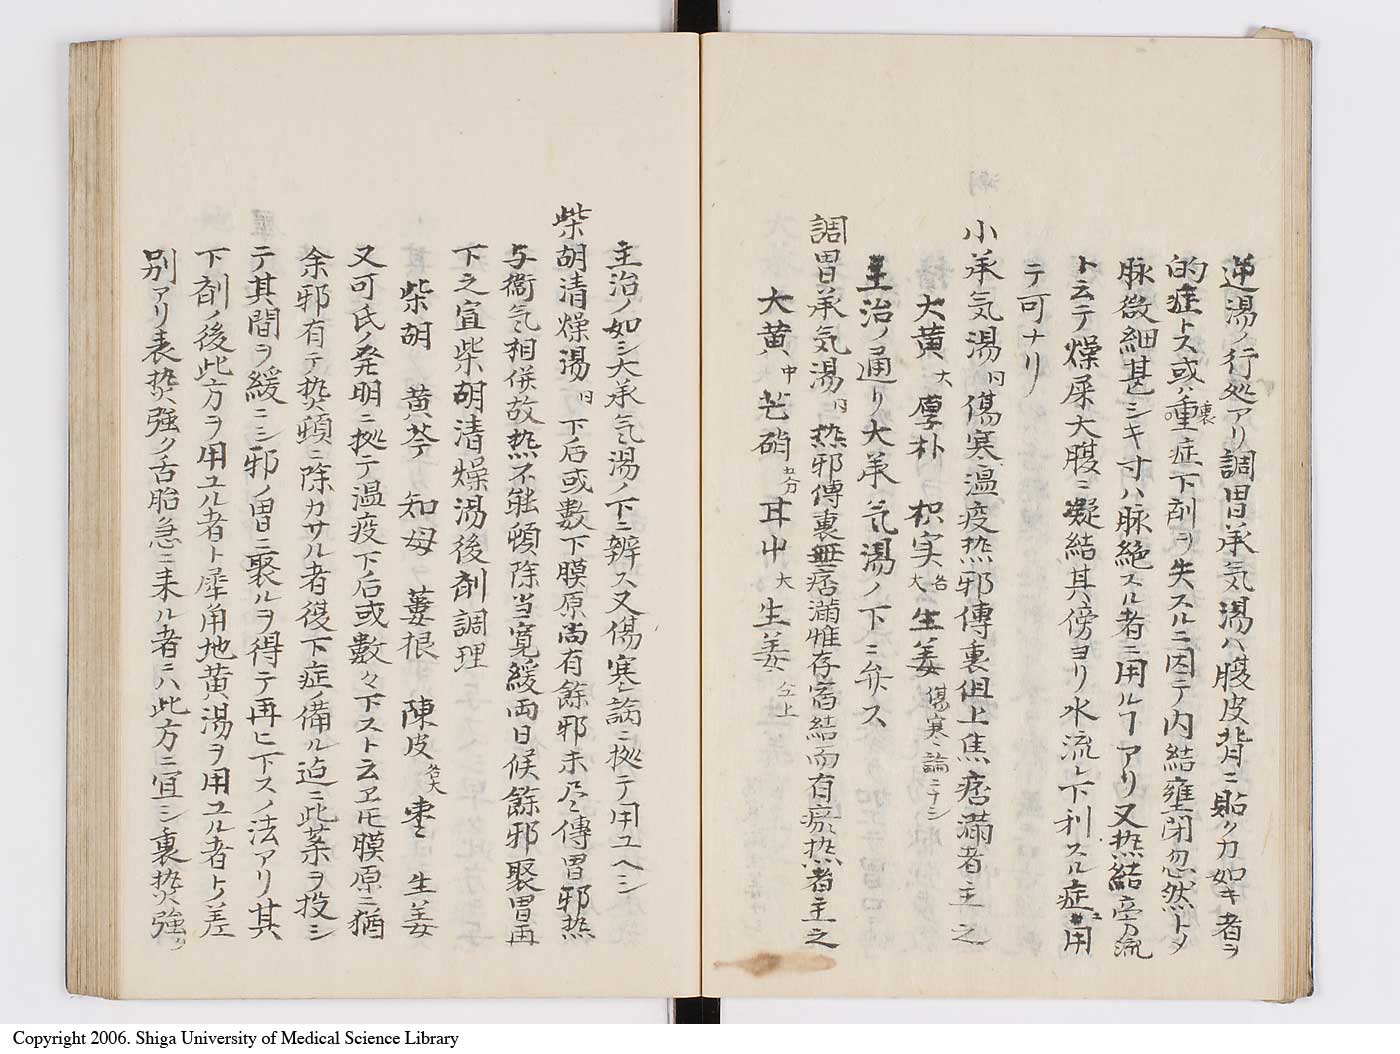 逆湯ノ行処アリ調胃承気湯ハ腹皮背ニ貼クカ如キ者ヲ
的症トス或ハ重症裏下剤ヲ失スルニ因テ内結壅閉忽然トメ
脉微細甚シキ寸ハ脉絶スル者ニ用ルヿアリ又熱結旁流
ト云テ燥屎大腹ニ凝結其傍ヨリ水流レ下利スル症ニ用
テ可ナリ
小承気湯 同 傷寒温疫熱邪傳裏但上焦痞滿者主之
大黄 大 厚朴 枳実 各大 生姜 傷寒論ニナシ
主治ノ通リ大承気湯ノ下ニ弁ス
調胃承気湯 同 熱邪傳裏無痞滿惟存宿結而有瘀熱者主之
大黄 中 芒硝 五分 耳艸 大 生姜 仝上
主治ノ如シ大承气湯ノ下ニ辨ス又傷寒論ニ拠テ用ユヘシ
柴胡清燥湯 同 下后或數下膜原尚有餘邪未尽傳胃邪熱
与衞气相併故熱不能頓除当寛緩両日候餘邪聚胃再
下之宜柴胡清燥湯後剤調理
柴胡 黄芩 知母 蔞根 陳皮 各大 棗 生姜
又可氏ノ発明ニ拠テ温疫下后或數々下スト云ヱ𪜈膜原ニ猶
余邪有テ熱頓ニ除カサル者復下症ノ備ル迠ニ此薬ヲ投シ
テ其間ヲ緩ニシ邪ノ胃ニ聚ルヲ得テ再ヒ下スノ法アリ其
下剤ノ後此方ヲ用ユル者ト犀角地黄湯ヲ用ユル者ト差
別アリ表熱強ク舌胎急ニ来ル者ニハ此方ニ宜シ裏熱強ク
Copyright 2006. Shiga University of Medical Science Library